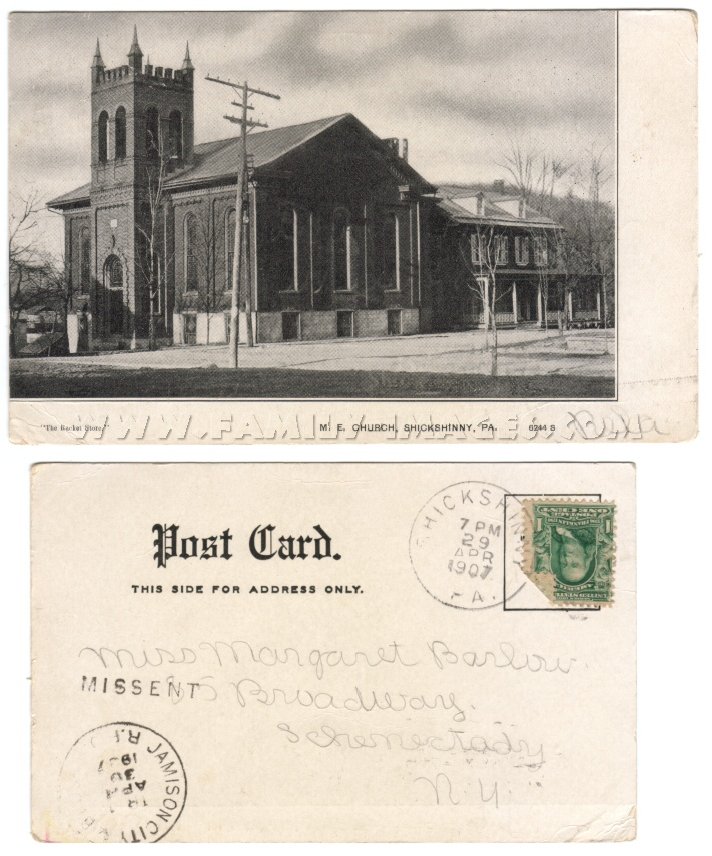 WWW.FAMILY-IMAGES.COM
"The Racket Store." M. E. CHURCH, SHICKSHINNY, PA. 6244 S
Post Card.
THIS SIDE FOR ADDRESS ONLY.
SHICKSHINNY
7 PM
29
APR
1907
PA.
Miss Margaret Barlow.
MISSENT
Broadway.
Schenectady
N. Y.
JAMISON CITY
R.F.D.
APR
30
1907